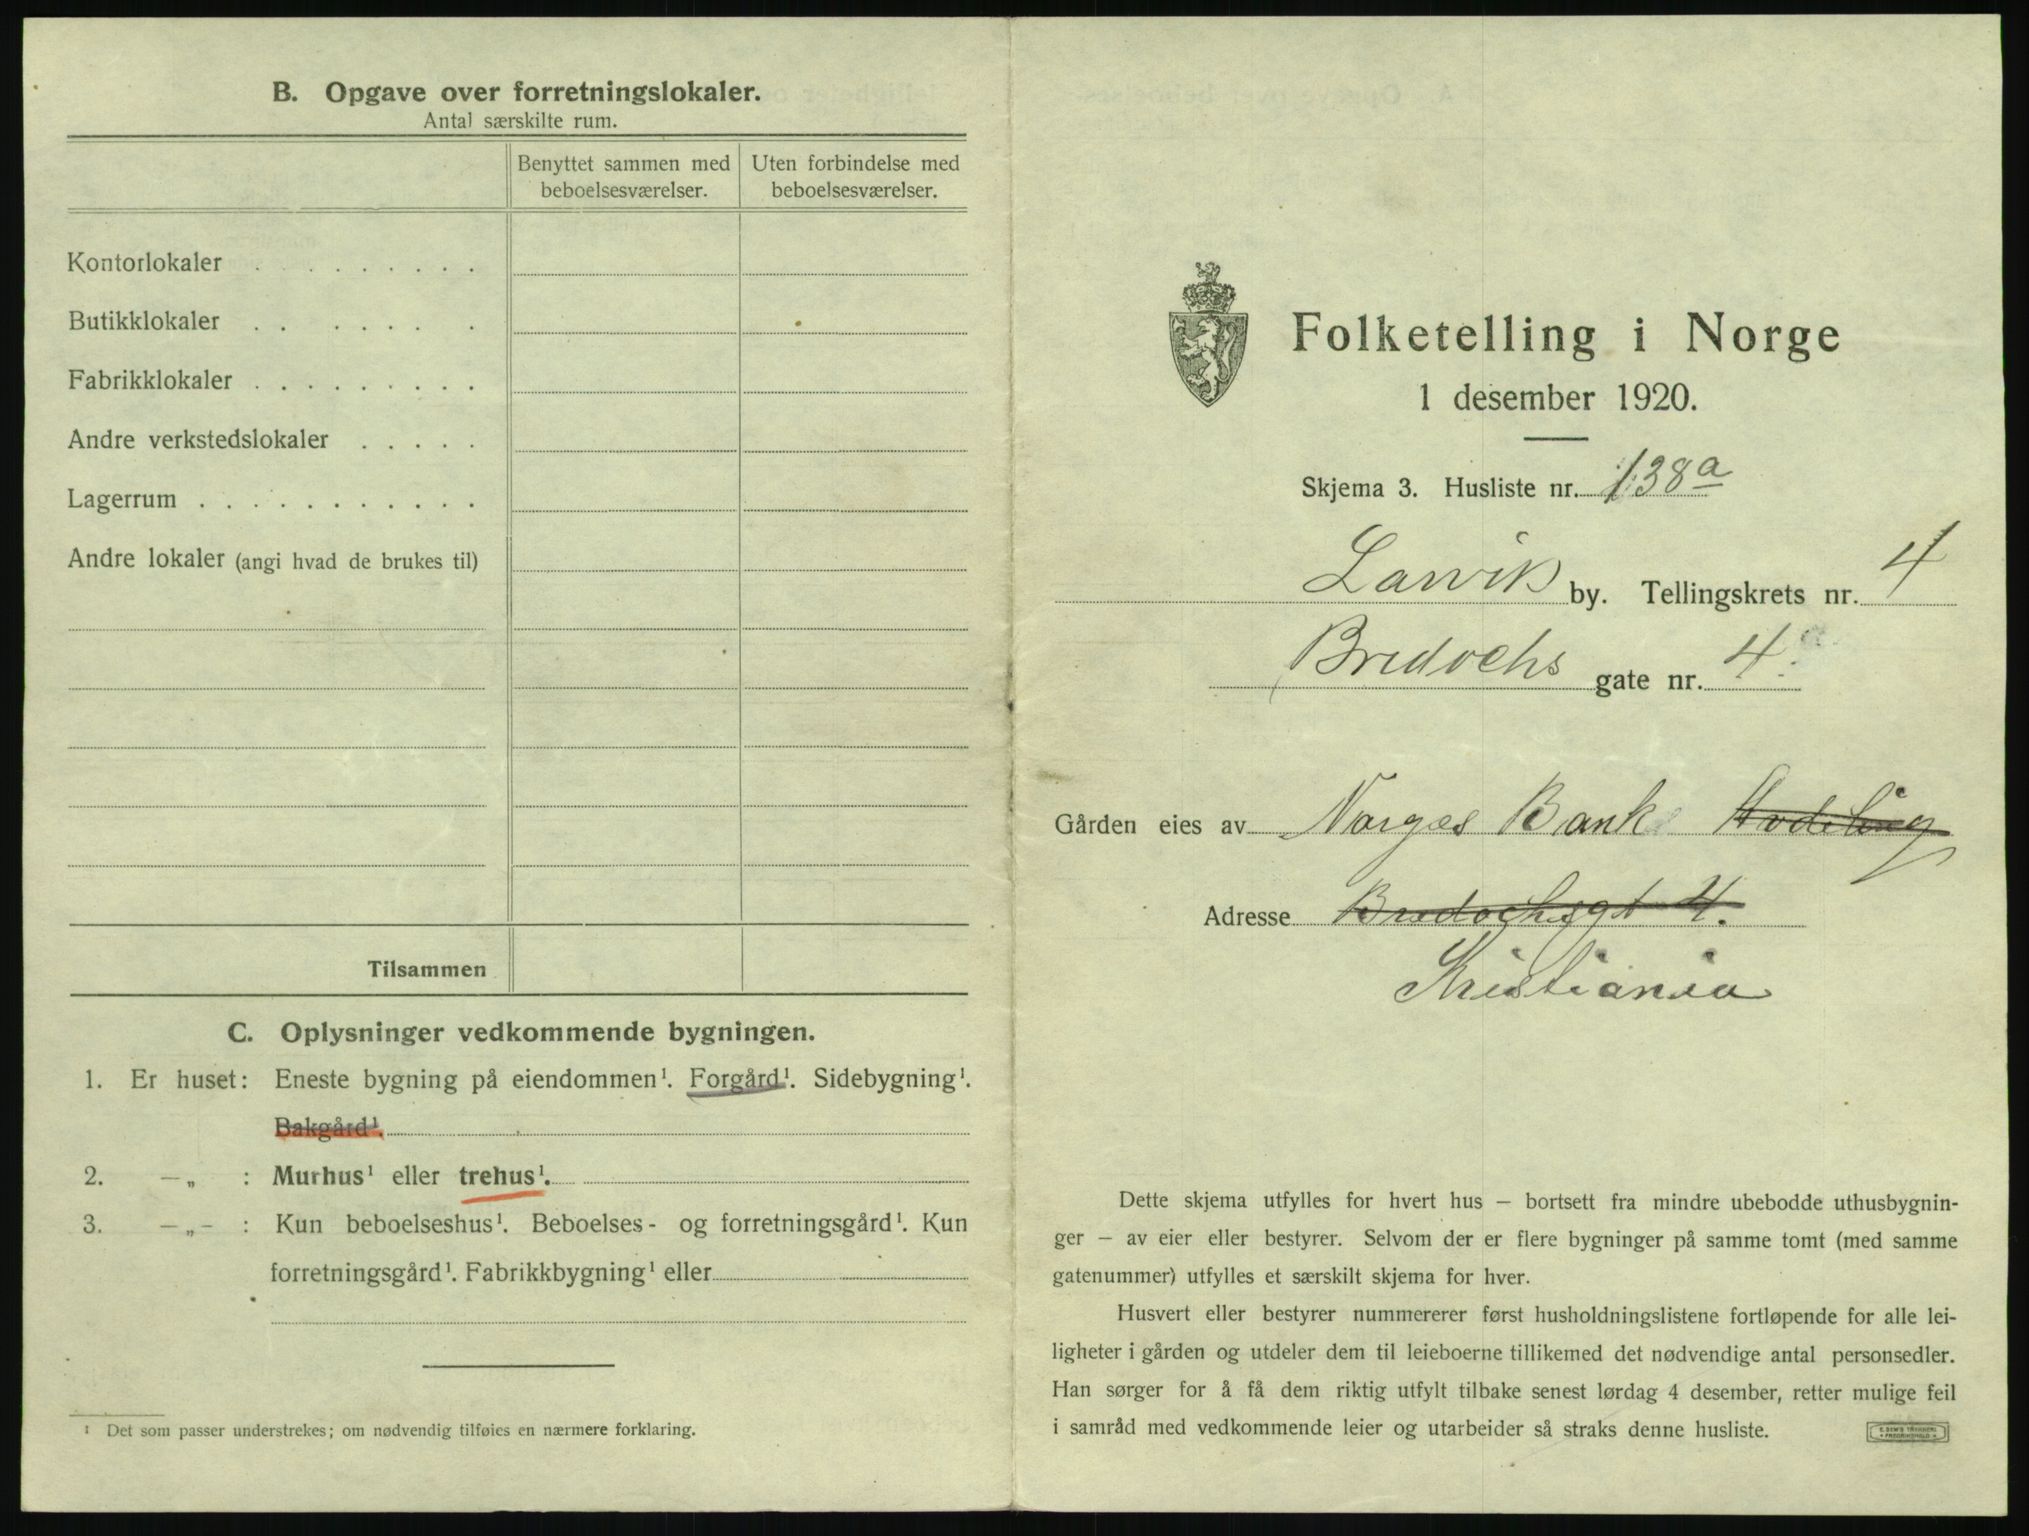 B. Opgave over forretningslokaler.
Antal særskilte rum.
Benyttet sammen med beboelsesværelser.
Uten forbindelse med beboelsesværelser.
Kontorlokaler . . . . . . . . .
Butikklokaler . . . . . . .
Fabrikklokaler . . . . . . . . .
Andre verkstedslokaler . . . . .
Lagerrum . . . . . . . . . . .
Andre lokaler (angi hvad de brukes til)
Tilsammen
C. Oplysninger vedkommende bygningen.
1. Er huset: Eneste bygning på eiendommen¹. Forgård¹. Sidebygning¹.
Bakgård¹.
2. —„ : Murhus¹ eller trehus¹.
3. —„- : Kun beboelseshus¹. Beboelses- og forretningsgård¹. Kun
forretningsgård¹. Fabrikkbygning¹ eller
¹ Det som passer understrekes; om nødvendig tilføies en nærmere forklaring.
Folketelling i Norge
1 desember 1920.
Skjema 3. Husliste nr. 138a
Larvik by. Tellingskrets nr. 4
Bredochs gate nr. 4
Gården eies av Norges Bank Avdeling
Adresse Bredochsgt 4.
Kristiania
Dette skjema utfylles for hvert hus — bortsett fra mindre ubebodde uthusbygnin-
ger — av eier eller bestyrer. Selvom der er flere bygninger på samme tomt (med samme
gatenummer) utfylles et særskilt skjema for hver.
Husvert eller bestyrer nummererer først husholdningslistene fortløpende for alle lei-
ligheter i gården og utdeler dem til leieboerne tillikemed det nødvendige antal personsedler.
Han sørger for å få dem riktig utfylt tilbake senest lørdag 4 desember, retter mulige feil
i samråd med vedkommende leier og utarbeider så straks denne husliste.